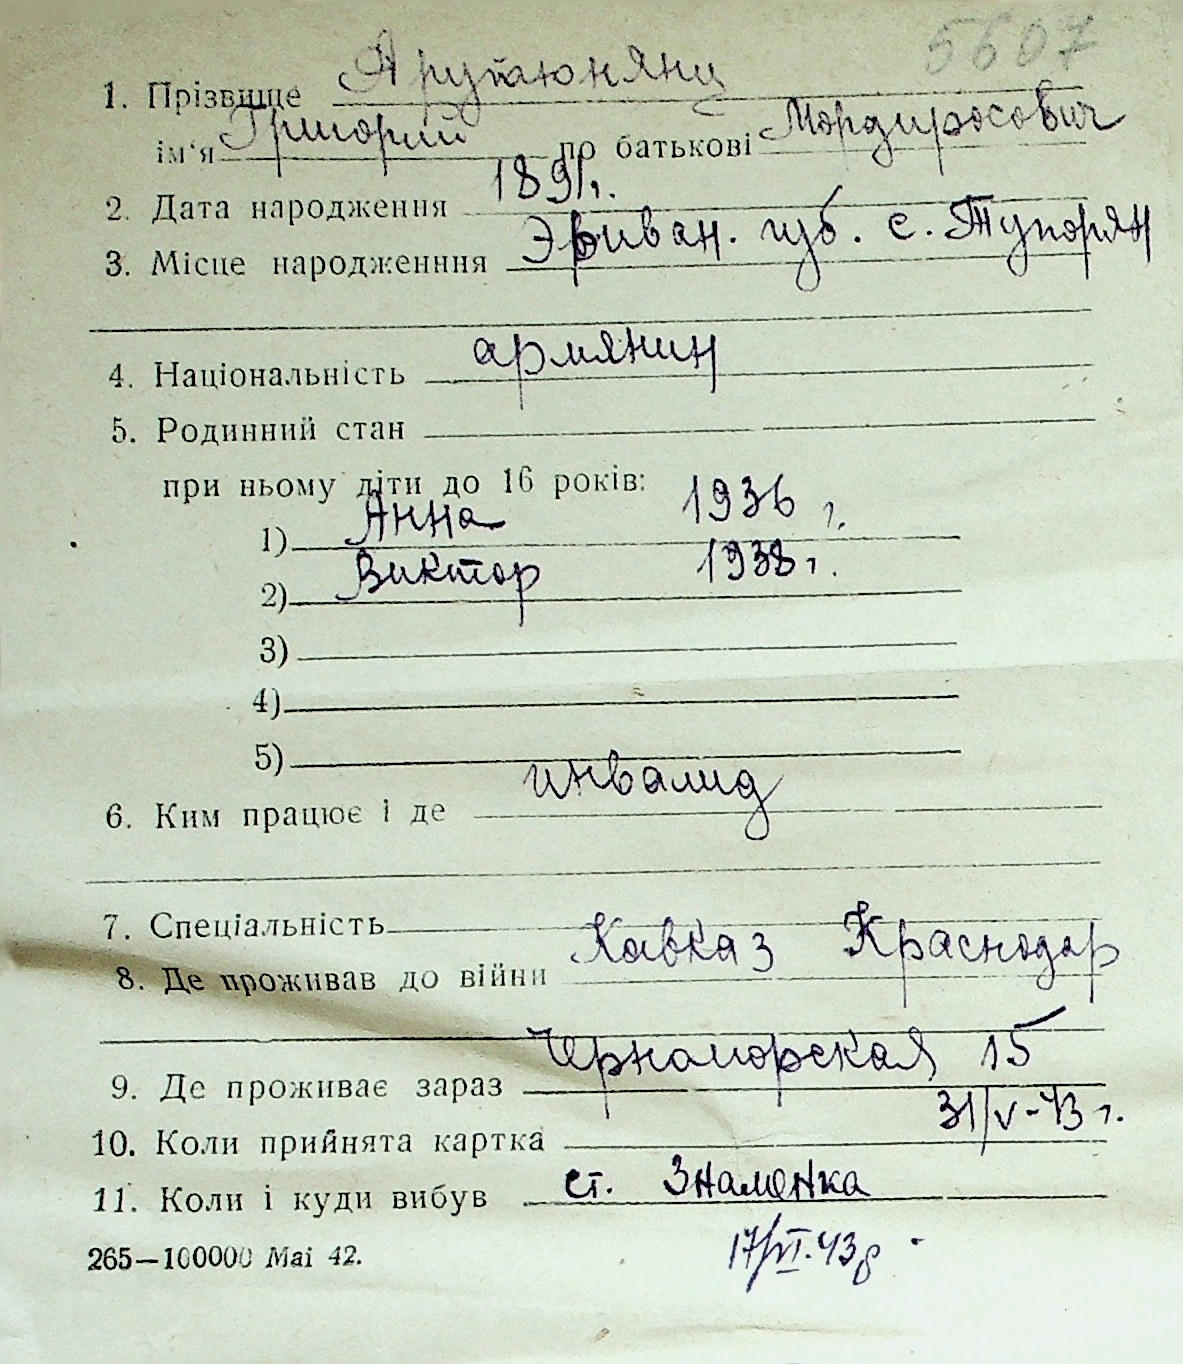 5607
1. Прізвище Арутюнянц
ім'я Григорий по батькові Мордиросович
2. Дата народження 1891 г.
3. Місце народженння Эриван. губ. с. Тупорян
4. Національність армянин
5. Родинний стан
при ньому діти до 16 років:
1) Анна 1936 г.
2) Виктор 1938 г.
3)
4)
5)
6. Ким працює і де инвалид
7. Спеціальність
8. Де проживав до війни Кавказ Краснодар
9. Де проживає зараз Черноморская 15
10. Коли прийнята картка 31/V-43 г.
11. Коли і куди вибув ст. Знаменка
265—100000 Mai 42. 17/VI.43